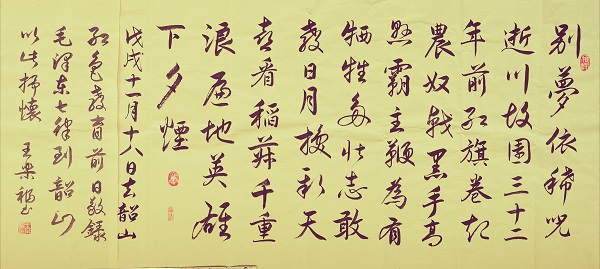 别夢依稀咒
逝川故園三十二
年前红旗卷起
農奴戟黑手高
懸霸主鞭為有
牺牲多壮志敢
教日月换新天
喜看稻菽千重
浪遍地英雄
下夕煙
戊戌十一月十八日去韶山
红色教育前日敬錄
毛泽东七律到韶山
以此抒懷 王